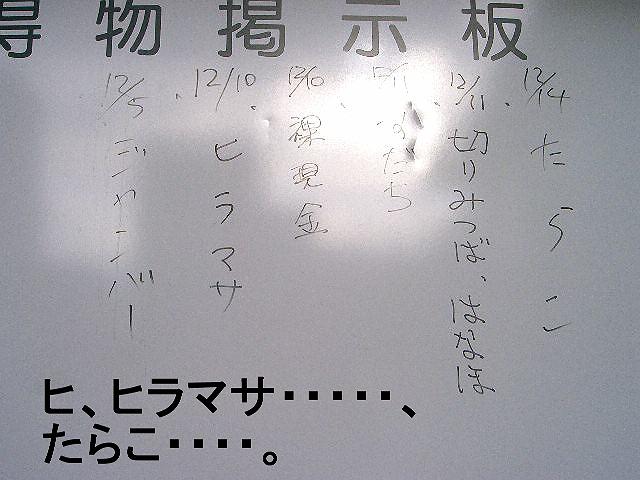 得物掲示板
12/14 たらこ
12/11 切りみつば、はなほ
12/11 すだち
12/10 裸現金
12/10 ヒラマサ
12/5 ジャンバー
ヒ、ヒラマサ・・・・・、
たらこ・・・・。